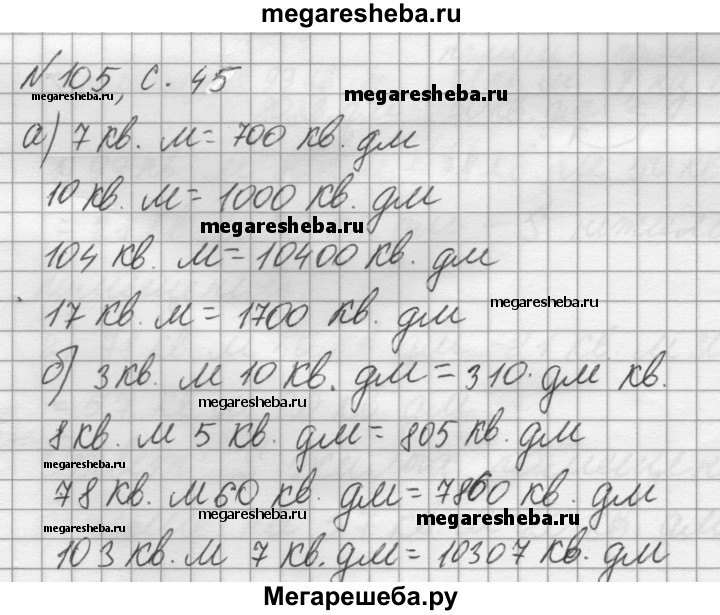 megaresheba.ru
№105, с. 45
megaresheba.ru
megaresheba.ru
а) 7 кв. м = 700 кв. дм
megaresheba.ru
10 кв. м = 1000 кв. дм
megaresheba.ru
104 кв. м = 10400 кв. дм
megaresheba.ru
17 кв. м = 1700 кв. дм
б) 3 кв. м 10 кв. дм = 310 дм кв.
megaresheba.ru
8 кв. м 5 кв. дм = 805 кв. дм
megaresheba.ru
78 кв. м 60 кв. дм = 7860 кв. дм
megaresheba.ru
megaresheba.ru
megaresheba.ru
103 кв. м 7 кв. дм = 10307 кв. дм
Мегарешеба.ру